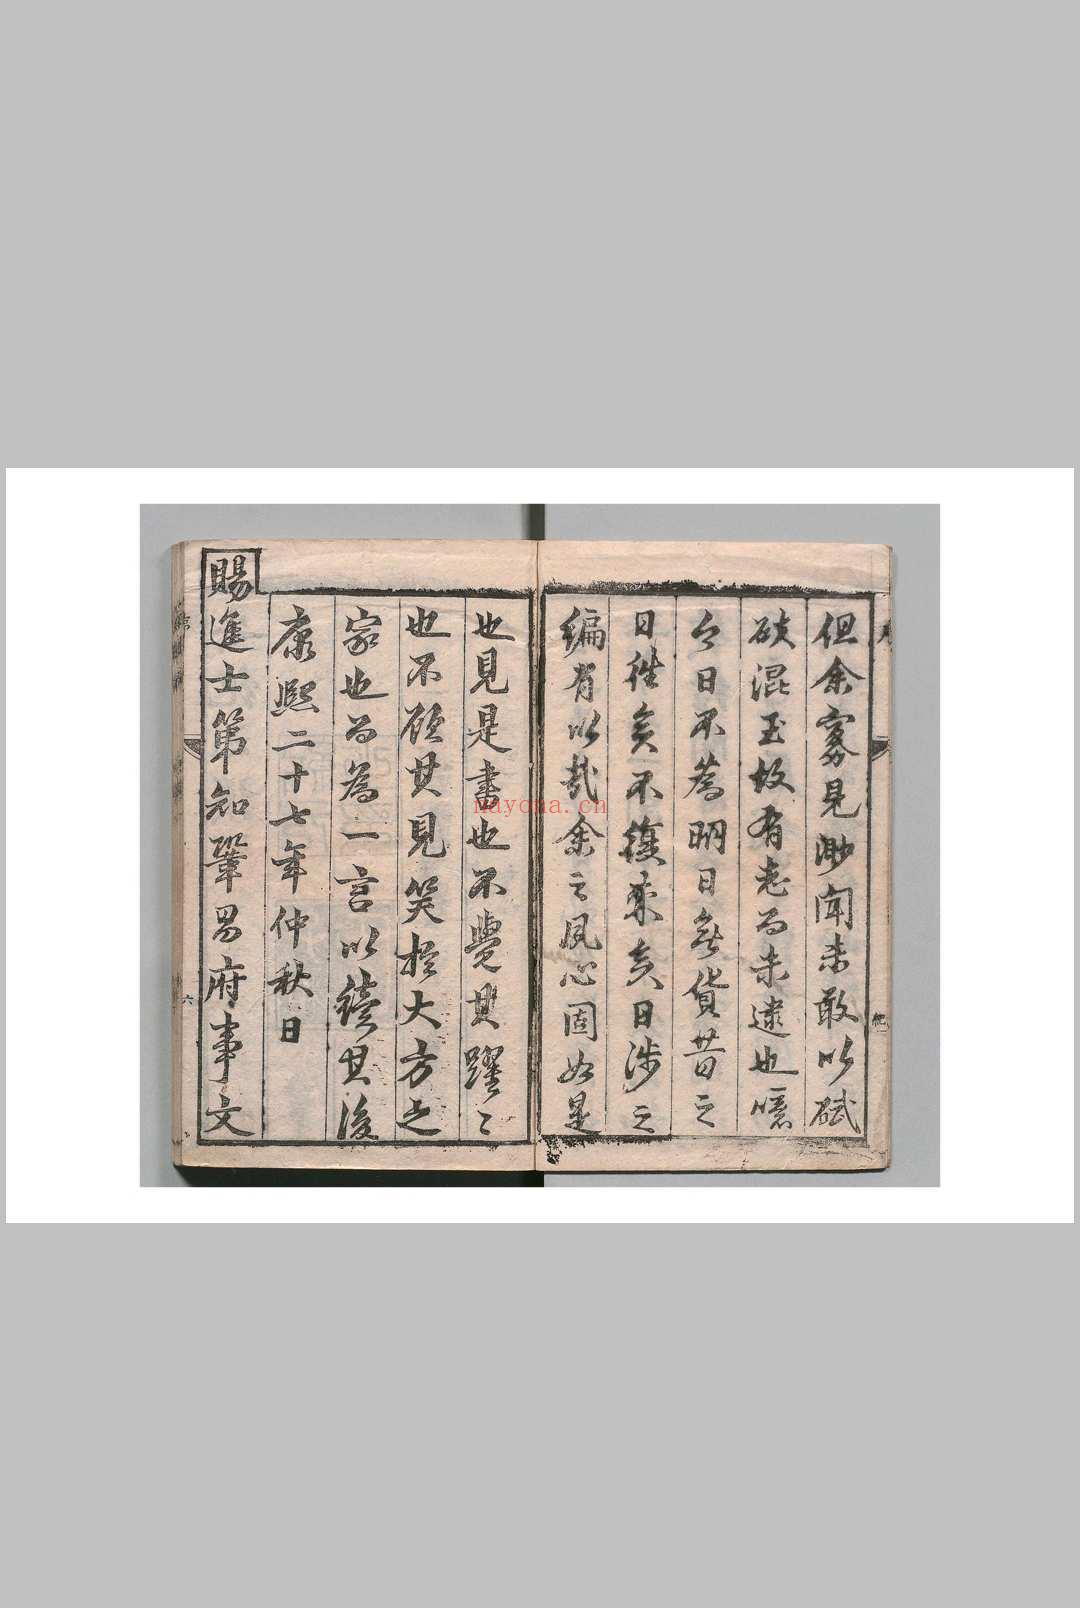 但余寡見尠聞未敢以碔
砆混玉故有志而未逮也噫
今日不為明日無貨昔之
日往矣不復來矣日涉之
編有以哉余之夙心固如是
也見是書也不覺其躍〻
也不顧其見笑於大方之
家也而為一言以續其後
康熙二十七年仲秋日
賜進士第知鞏昌府事文
六
nayona.cn